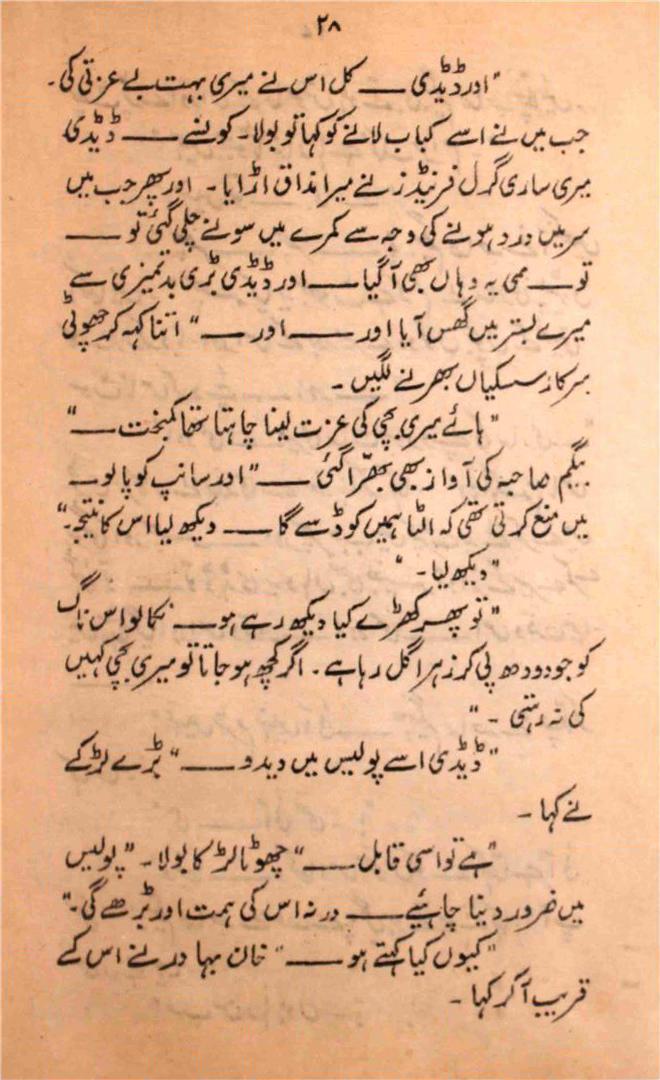 ۲۸
"اور ڈیڈی ـــ کل اس نے میری بہت بے عزتی کی۔
جب میں نے اسے کباب لانے کو کہا تو بولا۔ کولنے ـــ ڈیڈی
میری ساری گرل فرنیڈز نے میرا مذاق اڑایا۔ اور پھر جب میں
سر میں درد ہونے کی وجہ سے کمرے میں سونے چلی گئی تو ـــ
تو ـــ ممی یہ وہاں بھی آگیا ـــ اور ڈیڈی بڑی بدتمیزی سے
میرے بستر میں گھس آیا اور ـــ اور ـــ" اتنا کہہ کر چھوٹی
سرکار سسکیاں بھرنے لگیں۔
"ہائے میری بچی کی عزت لینا چاہتا تھا کمبخت ـــ"
بیگم صاحبہ کی آواز بھی بھرّا گئی ـــ "اور سانپ کو پالو ـــ
میں منع کرتی تھی کہ الٹا ہمیں کو ڈسے گا ـــ دیکھ لیا اس کا نتیجہ۔"
"دیکھ لیا۔"
"تو پھر کھڑے کیا دیکھ رہے ہو ـــ نکالو اس ناگ
کو جو دودھ پی کر زہر اگل رہا ہے۔ اگر کچھ ہو جاتا تو میری بچی کہیں
کی نہ رہتی۔"
"ڈیڈی اسے پولیس میں دیدو ـــ" بڑے لڑکے
نے کہا۔
"ہے تو اسی قابل ـــ" چھوٹا لڑکا بولا۔ "پولیس
میں ضرور دینا چاہئیے ـــ ورنہ اس کی ہمت اور بڑھے گی۔"
"کیوں کیا کہتے ہو ـــ" خان بہادر نے اس کے
قریب آکر کہا۔